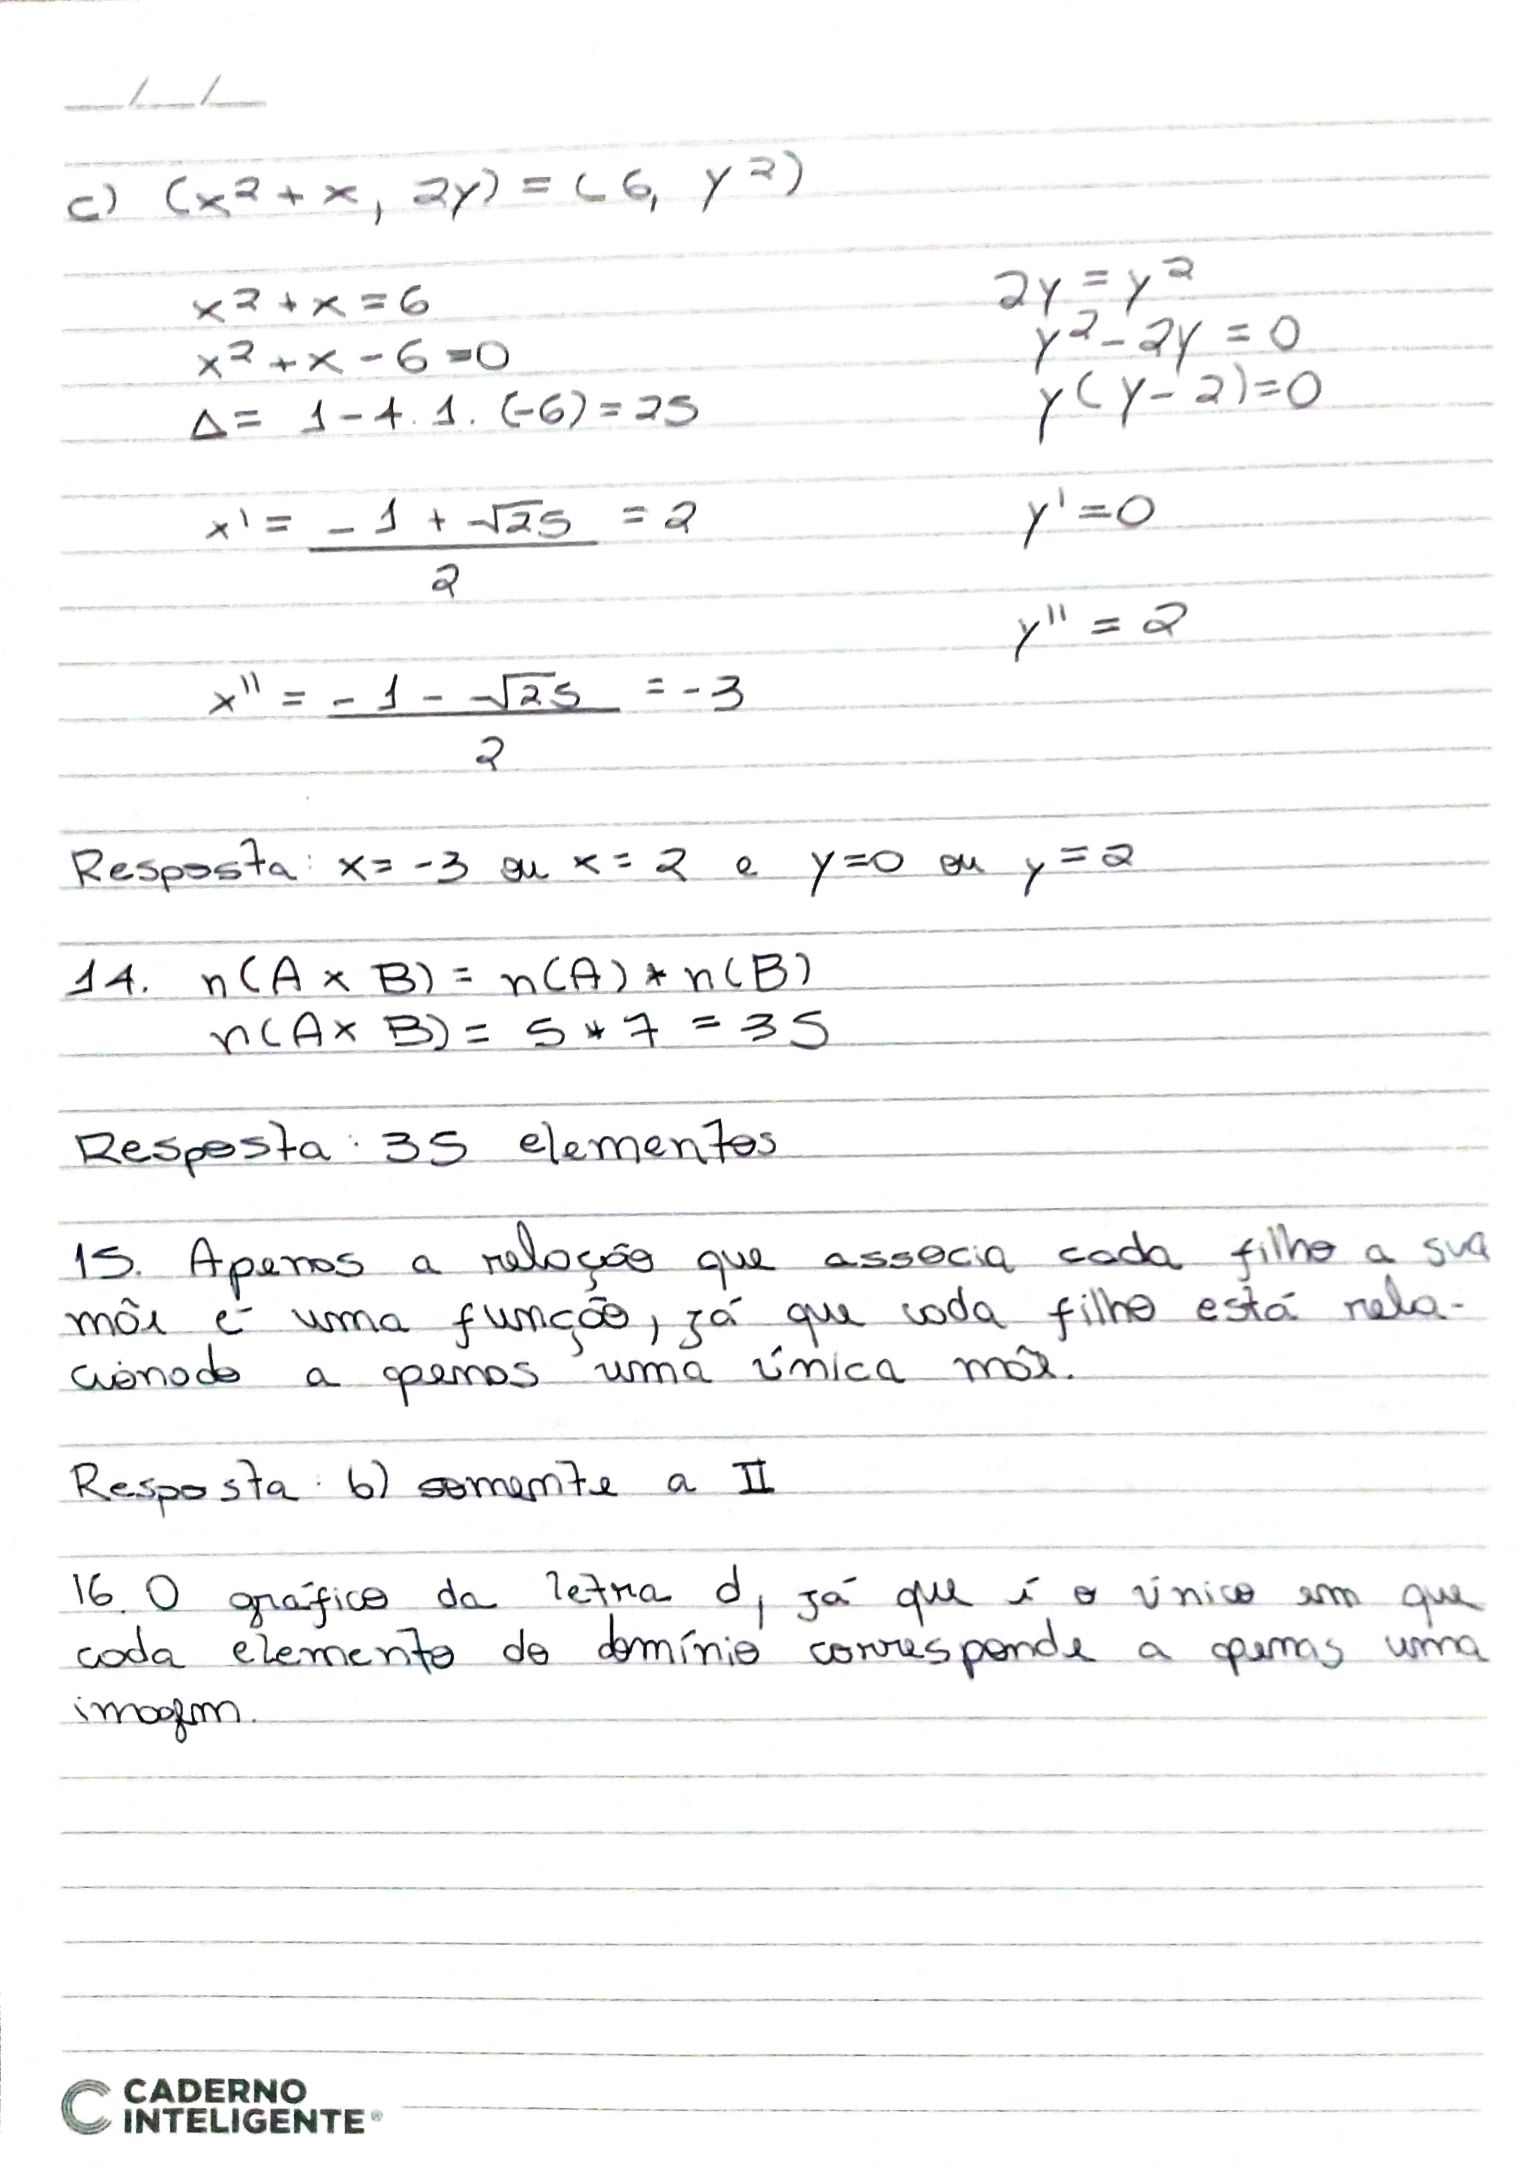 __/__/__
c) (x² + x, 2y) = (6, y²)
x² + x = 6
x² + x - 6 = 0
Δ = 1 - 4 . 1 . (-6) = 25
x' = -1 + √25 = 2
2
x'' = -1 - √25 = -3
2
2y = y²
y² - 2y = 0
y(y - 2) = 0
y' = 0
y'' = 2
Resposta: x = -3 ou x = 2 e y = 0 ou y = 2
14. n(A x B) = n(A) * n(B)
n(A x B) = 5 * 7 = 35
Resposta: 35 elementos
15. Apenas a relação que associa cada filho a sua
mãe é uma função, já que cada filho está rela-
cionado a apenas uma única mãe.
Resposta: b) somente a II
16. O gráfico da letra d, já que é o único em que
cada elemento do domínio corresponde a apenas uma
imagem.
CADERNO
INTELIGENTE®